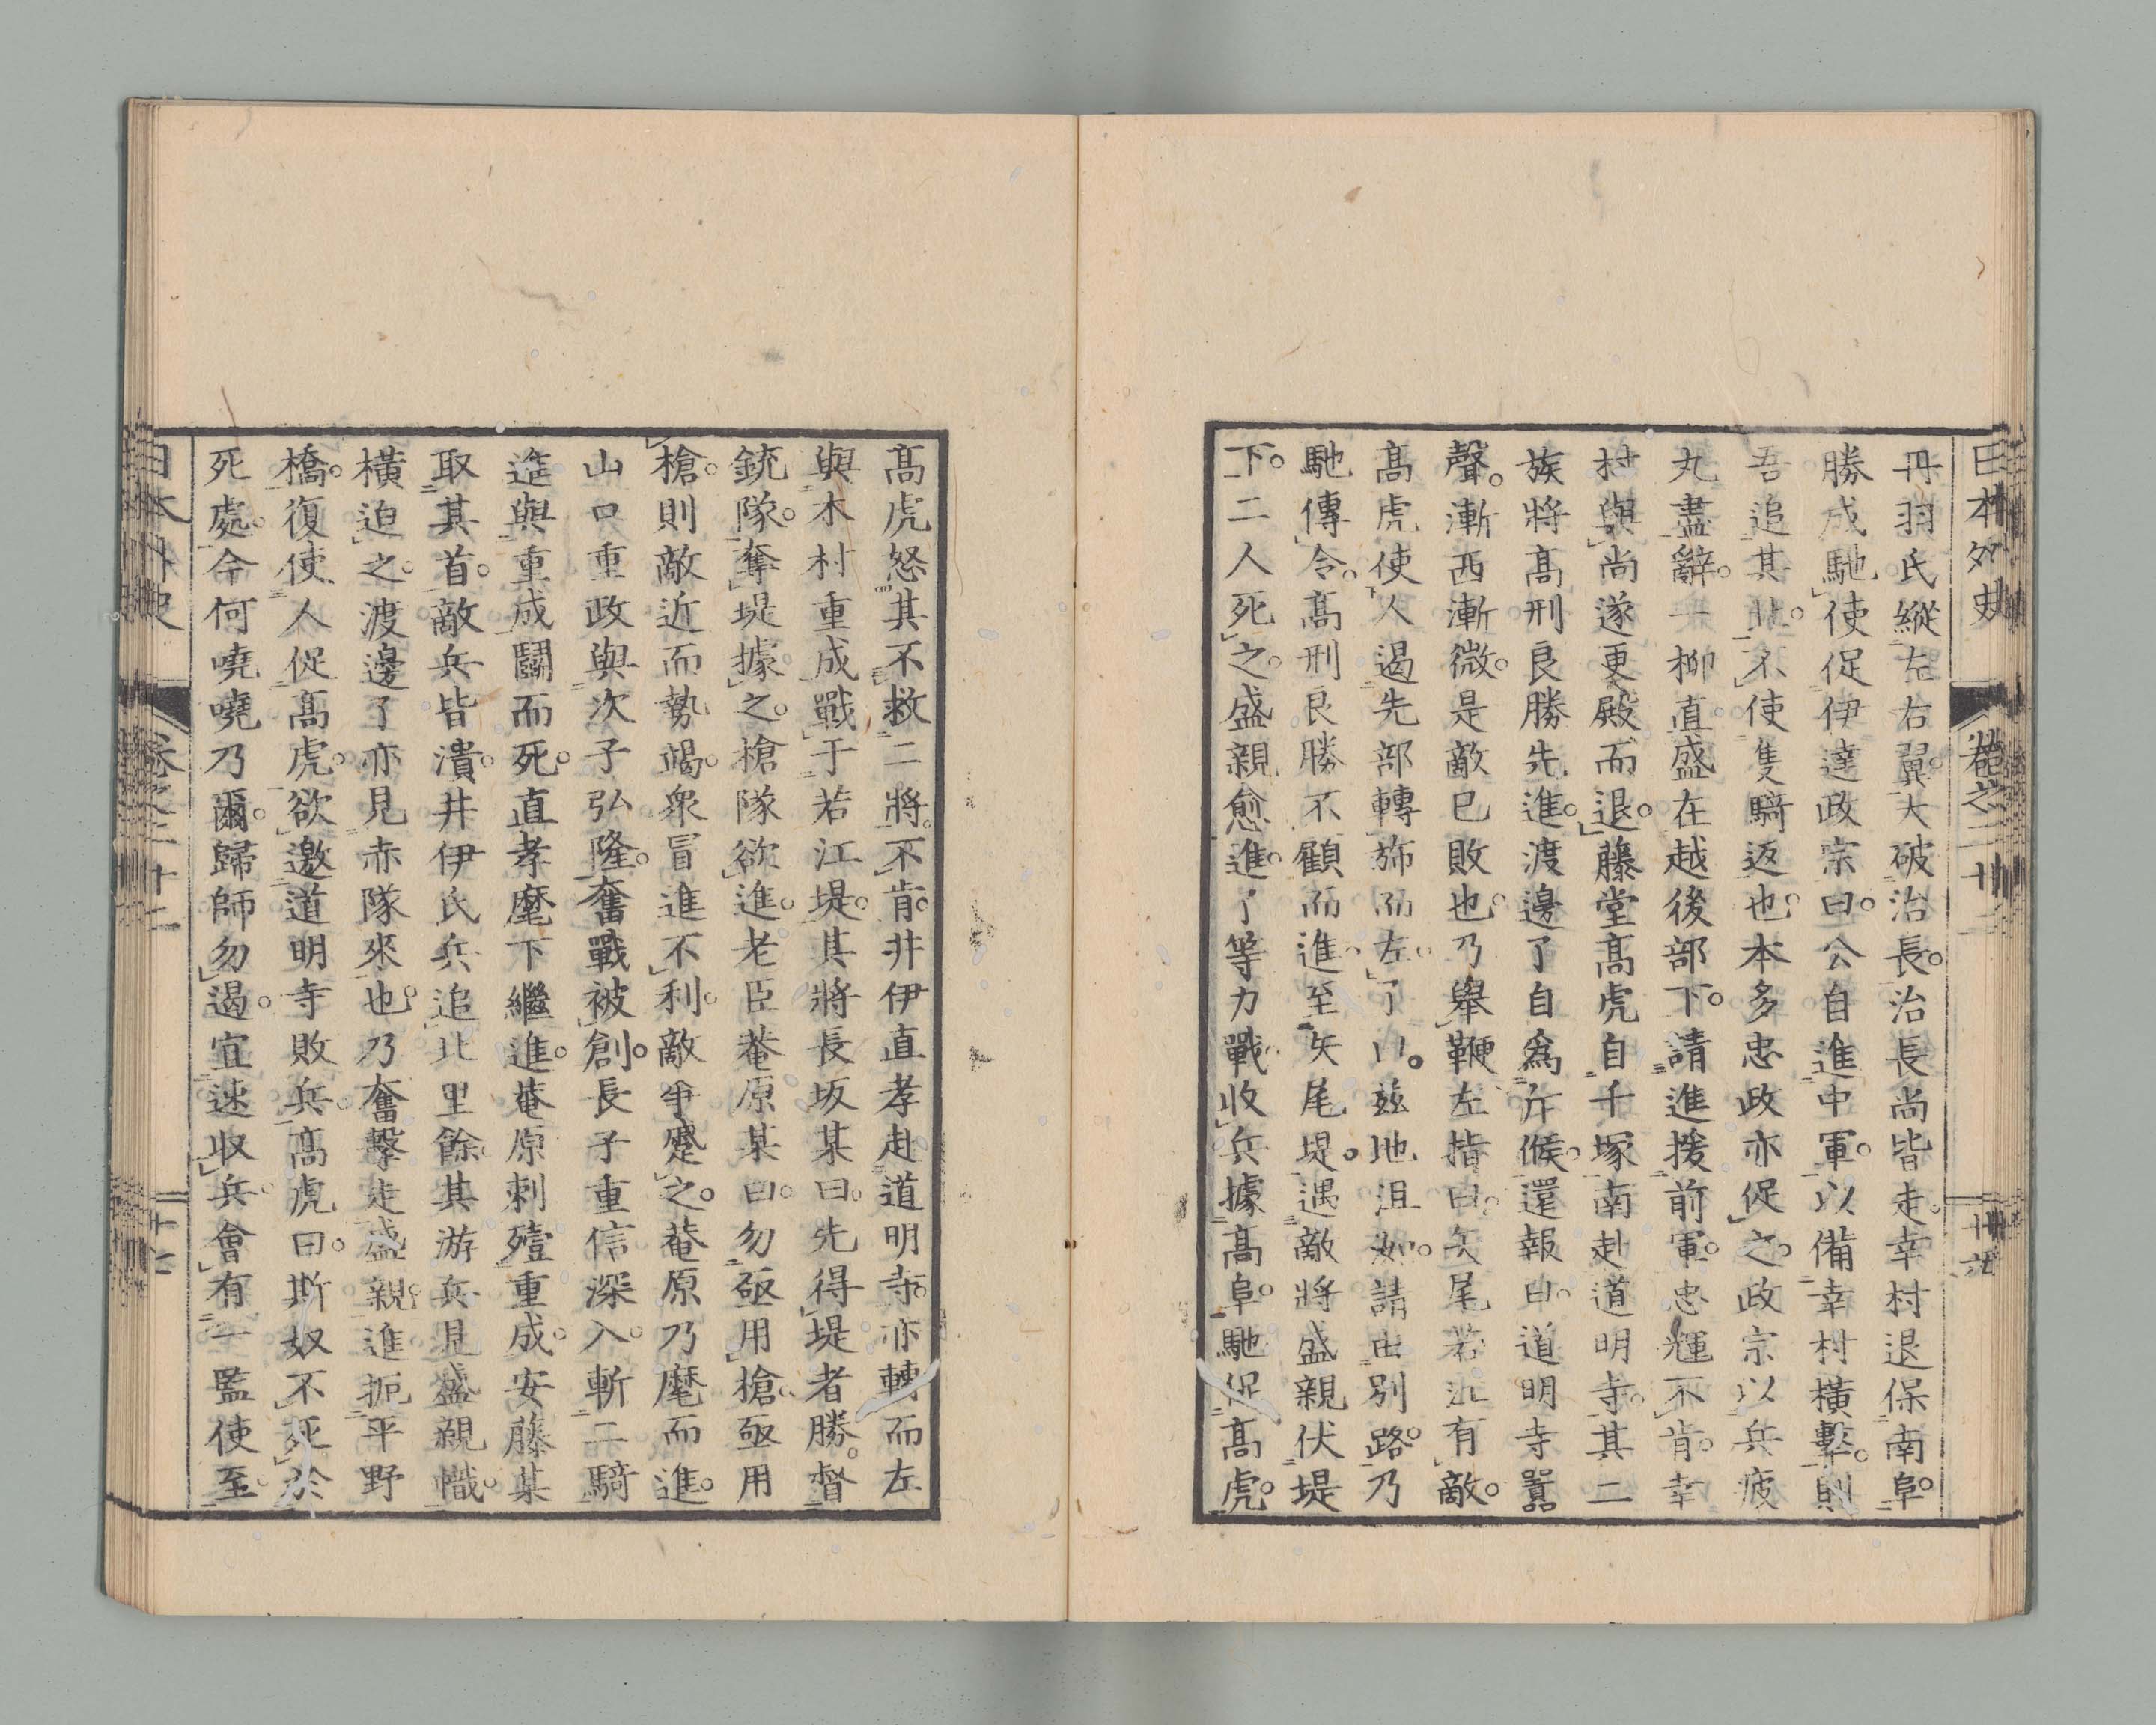 日本外史
卷之二十二
丹羽氏縱左右翼大破治長。治長尚皆走幸村退保南阜。
勝成馳使促伊達政宗曰。公自進中軍。以備幸村橫擊。則
吾追其北。不使隻騎返也。本多忠政亦促之。政宗以兵疲
丸盡辭。一柳直盛在越後部下。請進援前軍。忠輝不肯。幸
村與尚遂更殿而退。藤堂高虎自千塚南赴道明寺。其二
族將高刑良勝先進。渡邊了自爲斥候。還報曰。道明寺囂
聲。漸西漸微。是敵已敗也。乃舉鞭左指曰。矢尾若江有敵。
高虎使人遏先部轉旆而左。了以。茲地沮洳。請由別路。乃
馳傳令。高刑良勝不顧而進。至矢尾堤。遇敵將盛親伏堤
下。二人死之。盛親愈進。了等力戰收兵據高阜。馳促高虎。
高虎怒其不救二將。不肯。井伊直孝赴道明寺。亦轉而左
與木村重成戰于若江堤。其將長坂某曰。先得堤者勝。督
銃隊。奪堤據之。槍隊欲進。老臣菴原某曰。勿亟用槍。亟用
槍。則敵近而勢竭。衆冒進不利。敵爭蹙之。菴原乃麾而進。
山口重政與次子弘隆。奮戰被創。長子重信深入。斬二騎
進與重成鬭而死。直孝麾下繼進。菴原刺殪重成。安藤某
取其首。敵兵皆潰。井伊氏兵追北里餘。其游兵見盛親幟。
橫迫之。渡邊了亦見赤隊來也。乃奮擊走盛親。進扼平野
橋。復使人促高虎。欲邀道明寺敗兵。高虎曰。斯奴不死於
死處。今何嘵嘵乃爾。歸師勿遏。宜速收兵。會有一監使至。
日本外史
卷之二十二